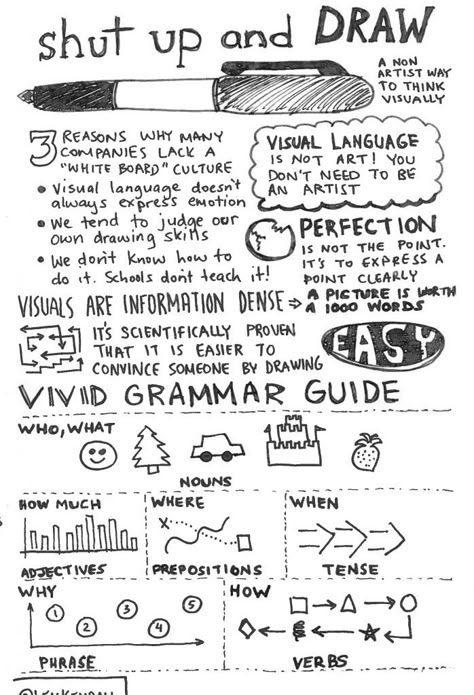 shut up and DRAW
A NON
ARTIST WAY
TO THINK
VISUALLY
3 REASONS WHY MANY
COMPANIES LACK A
"WHITE BOARD" CULTURE
• Visual language doesn't
always express emotion
• We tend to judge our
own drawing skills
• We don't know how to
do it. Schools don't teach it!
VISUAL LANGUAGE
IS NOT ART! YOU
DON'T NEED TO BE
AN ARTIST
PERFECTION
IS NOT THE POINT.
IT'S TO EXPRESS A
POINT CLEARLY
VISUALS ARE INFORMATION DENSE ⇒ A PICTURE IS WORTH
A 1000 WORDS
IT'S SCIENTIFICALLY PROVEN
THAT IT IS EASIER TO
CONVINCE SOMEONE BY DRAWING
EASY
VIVID GRAMMAR GUIDE
WHO, WHAT
NOUNS
HOW MUCH
ADJECTIVES
WHERE
X
PREPOSITIONS
WHEN
TENSE
WHY
1 2 3 4 5
PHRASE
HOW
VERBS